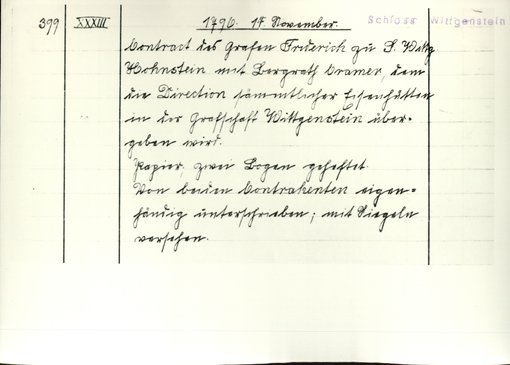 399 XXXIII 1796. 17. November. Schloss Wittgenstein
Contract des Grafen Friderich zu S. Wittg.
Hohnstein mit Bergrath Cramer, dem
die Direction sämmtlicher Eisenhütten
in der Grafschaft Wittgenstein über-
geben wird.
Papier, zwei Bogen geheftet.
Von beiden Contrahenten eigen-
händig unterschrieben; mit Siegeln
versehen.